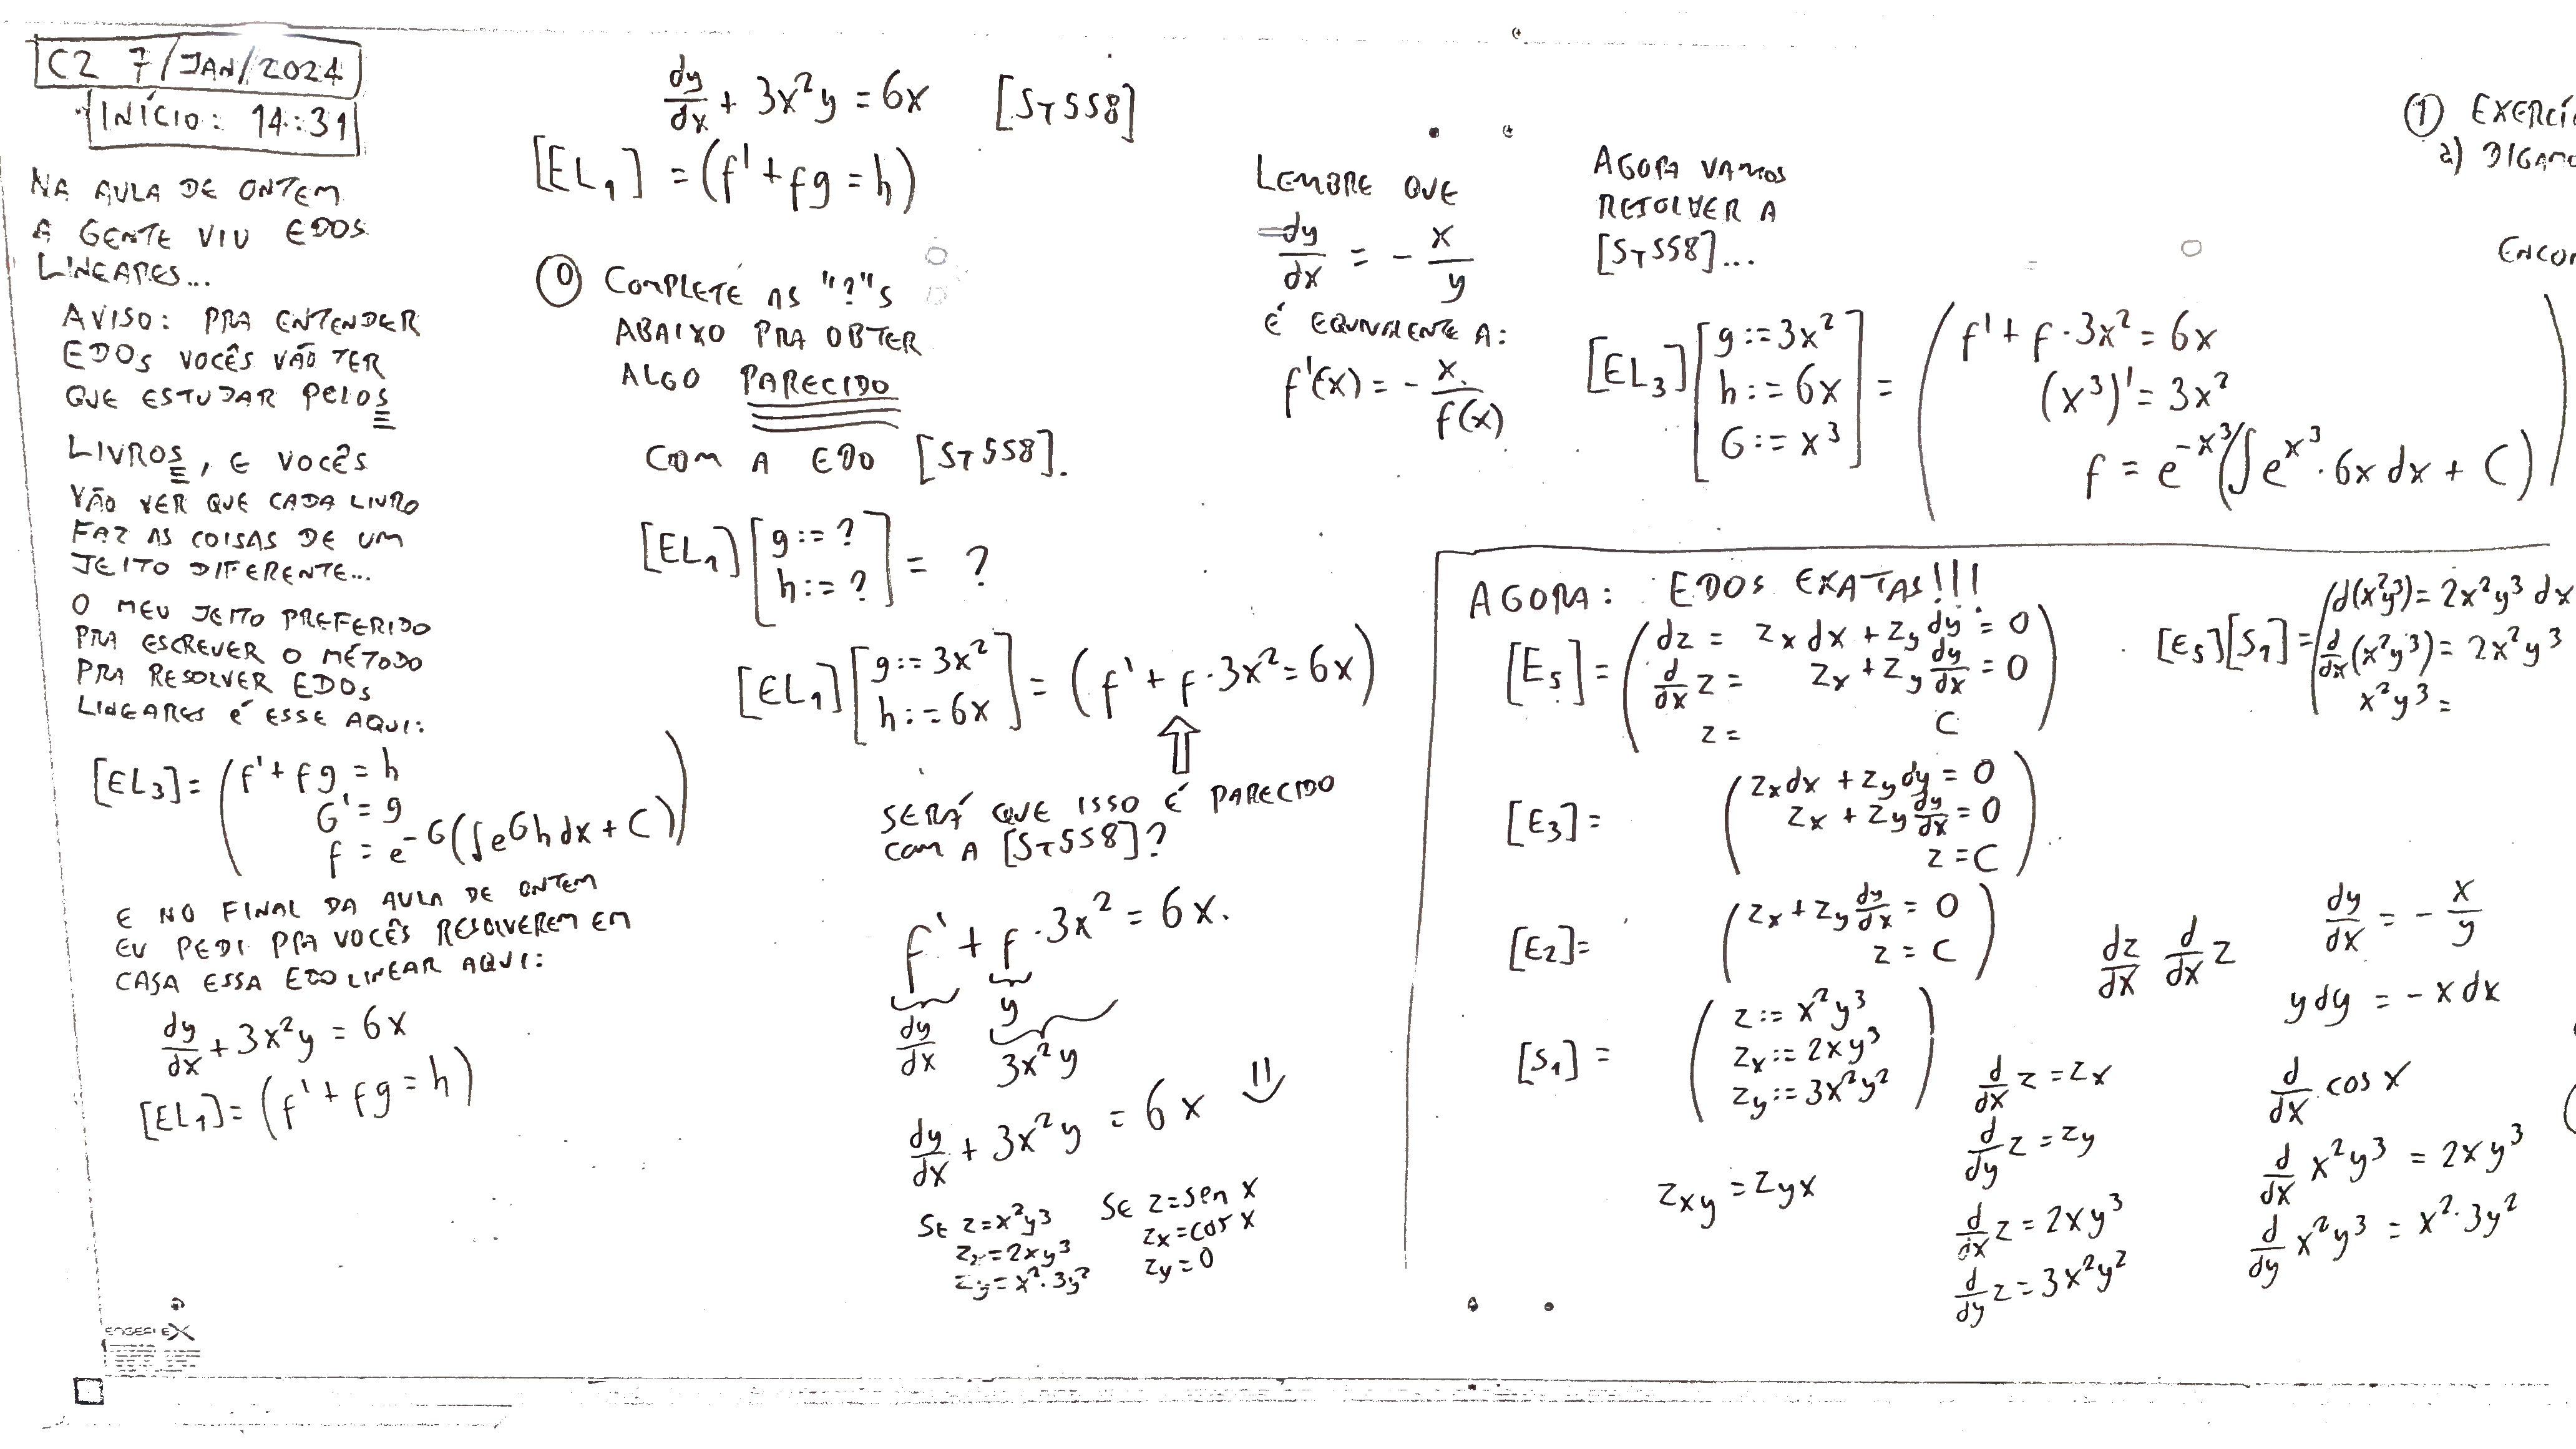 C2 7/JAN/2024
INÍCIO: 14:31
NA AULA DE ONTEM
A GENTE VIU EDOS
LINEARES...
AVISO: PRA ENTENDER
EDOS VOCÊS VÃO TER
QUE ESTUDAR PELOS
LIVROS, E VOCÊS
VÃO VER QUE CADA LIVRO
FAZ AS COISAS DE UM
JEITO DIFERENTE...
O MEU JEITO PREFERIDO
PRA ESCREVER O MÉTODO
PRA RESOLVER EDOS
LINEARES É ESSE AQUI:
[EL₃] = (f' + fg = h
G' = g
f = e^{-G}(∫e^G h dx + C))
E NO FINAL DA AULA DE ONTEM
EU PEDI PRA VOCÊS RESOLVEREM EM
CASA ESSA EDO LINEAR AQUI:
dy/dx + 3x²y = 6x
[EL₁] = (f' + fg = h)
dy/dx + 3x²y = 6x [ST558]
[EL₁] = (f' + fg = h)
⓪ COMPLETE AS "?"S
ABAIXO PRA OBTER
ALGO PARECIDO
COM A EDO [ST558].
[EL₁] [g := ?
h := ?] = ?
[EL₁] [g := 3x²
h := 6x] = (f' + f·3x² = 6x)
⇑
SERÁ QUE ISSO É PARECIDO
COM A [ST558]?
f' + f·3x² = 6x.
y
dy/dx 3x²y
dy/dx + 3x²y = 6x
SE z=x²y³
zx=2xy³
zy=x²·3y²
SE z=sen x
zx=cos x
zy=0
LEMBRE QUE
dy/dx = - x/y
É EQUIVALENTE A:
f'(x) = - x/f(x)
AGORA VAMOS
RESOLVER A
[ST558]...
[EL₃] [g := 3x²
h := 6x
G := x³] = (f' + f·3x² = 6x
(x³)' = 3x²
f = e^{-x³}(∫e^{x³}·6x dx + C))
AGORA: EDOS EXATAS!!!
[E₅] = (dz = zx dx + zy dy = 0
d/dx z = zx + zy dy/dx = 0
z = C)
[E₅][S₁] = (d(x²y³) = 2x²y³ dx
d/dx (x²y³) = 2x²y³
x²y³ =
[E₃] = (zx dx + zy dy = 0
zx + zy dy/dx = 0
z = C)
[E₂] = (zx + zy dy/dx = 0
z = C)
[S₁] = (z := x²y³
zx := 2xy³
zy := 3x²y²)
zxy = zyx
dz/dx d/dx z
d/dx z = zx
d/dy z = zy
d/dx z = 2xy³
d/dy z = 3x²y²
dy/dx = - x/y
y dy = - x dx
d/dx cos x
d/dx x²y³ = 2xy³
d/dy x²y³ = x²·3y²
① EXERCÍ
a) DIGAMO
ENCON